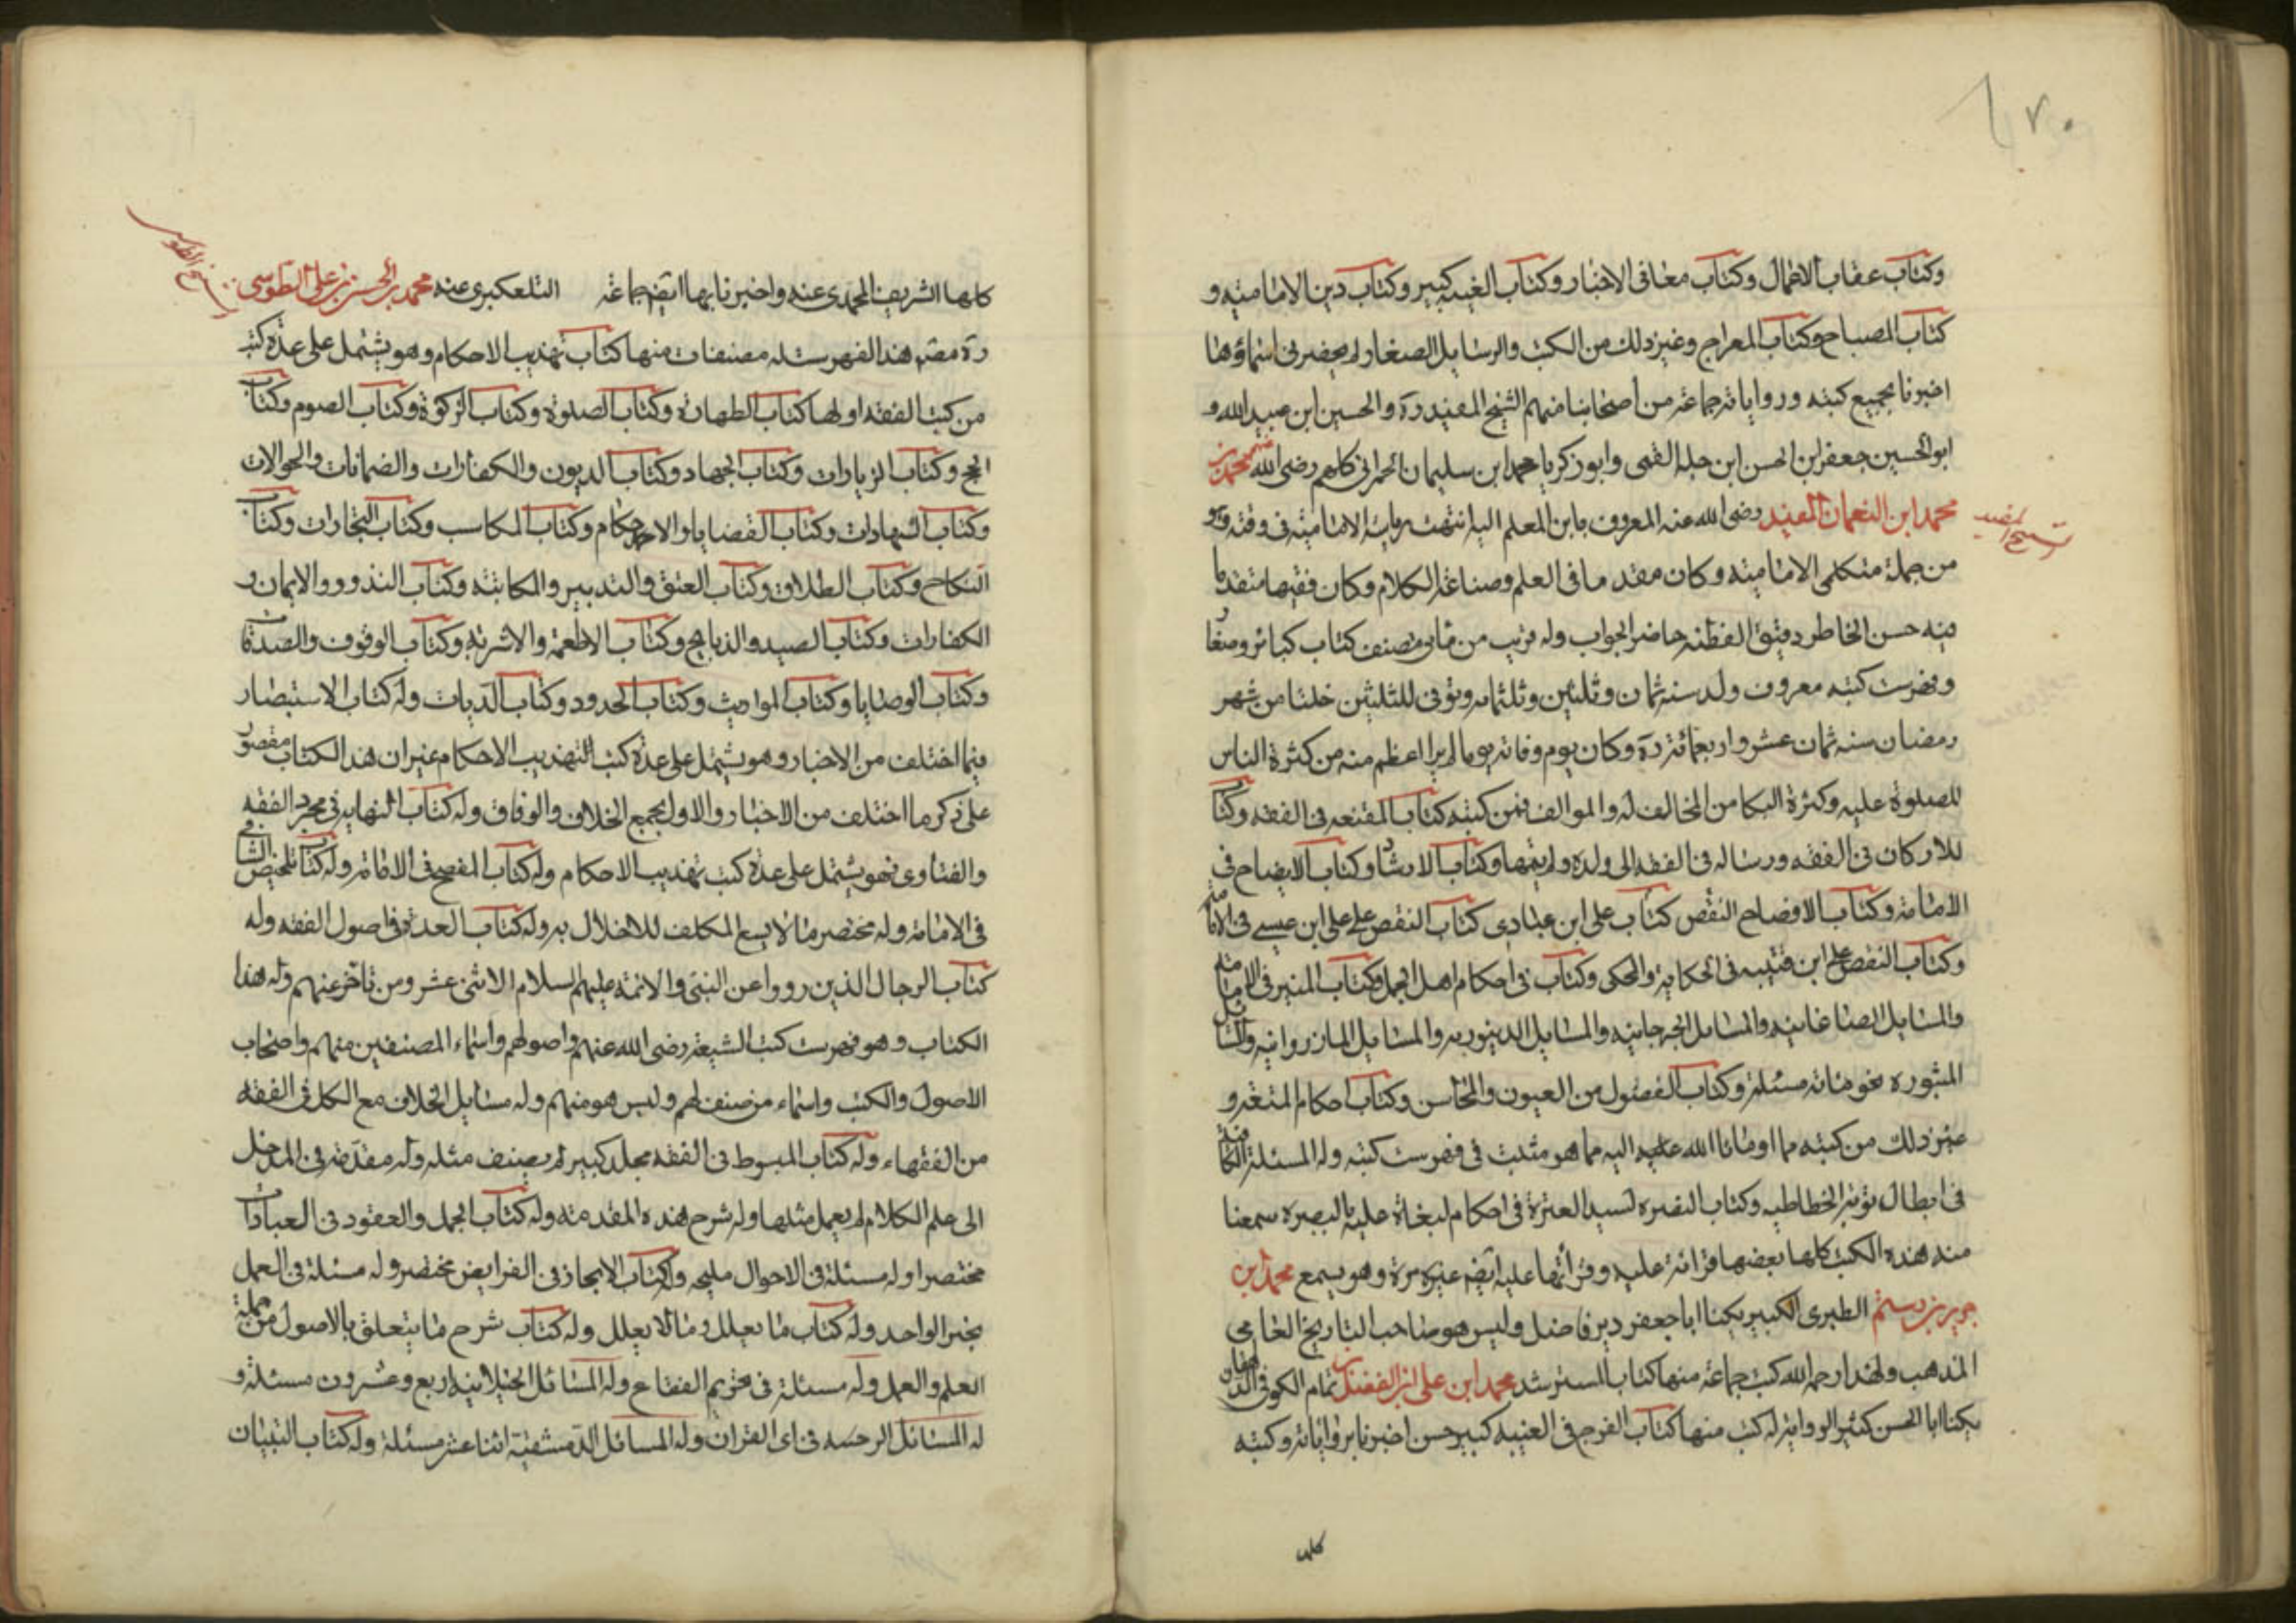 ٧٠
وكتاب عقاب الاعمال وكتاب معانى الاخبار وكتاب الغيبه كبير وكتاب دين الاماميه و
كتاب المصباح وكتاب المعراج وغير ذلك من الكتب والرسايل الصغار لم يحضرنى اسماؤها
اخبرنا بجميع كتبه ورواياته جماعة من اصحابنا منهم الشيخ المفيد ره والحسين ابن عبيد الله و
ابو الحسين جعفر ابن الحسن ابن حسكه القمى وابو زكريا محمد ابن سليمان الحمرانى كلهم رضى الله عنهم محمد بن
محمد ابن النعمان المفيد رضى الله عنه المعروف بابن المعلم اليه انتهت رياسة الاماميه فى وقته وهو
الشيخ المفيد
من جملة متكلمى الاماميه وكان مقدما فى العلم وصناعة الكلام وكان فقيها متقدما
فيه حسن الخاطر دقيق الفطنه حاضر الجواب وله قريب من مأتى مصنف كتاب كبائر وصغار
وفهرست كتبه معروف ولد سنه ثمان وثلثين وثلثمائه وتوفى لليلتين خلتا من شهر
رمضان سنه ثمان عشر واربعمائة ره وكان يوم وفاته يوما لم ير اعظم منه من كثرة الناس
للصلوة عليه وكثرة البكا من المخالف له والموالف فمن كتبه كتاب المقنعه فى الفقه وكتاب
للاركان فى الفقه ورساله فى الفقه الى ولده ولم يتمها وكتاب الارشاد وكتاب الايضاح فى
الامامة وكتاب الافصاح النقض كتاب على ابن عبادى كتاب النقض على على ابن عيسى فى الامامة
وكتاب النقض على ابن قتيبه فى الحكاية والمحكى وكتاب فى احكام اهل الجمل وكتاب المنير فى الامامة
والمسايل الصاغانيه والمسايل الجرجانيه والمسايل الدينوريه والمسايل المازروانيه والمسايل
المثوره نحو مائة مسئلة وكتاب الفصول من العيون والمحاسن وكتاب احكام المتعة و
غير ذلك من كتبه مما اومانا الله عليه اليه مما هو مثبت فى فهرست كتبه وله المسئلة الكافيه
فى ابطال توبة الخطاطيه وكتاب النصره لسيد العترة فى احكام لبغاة عليه بالبصره سمعنا
منه هذه الكتب كلها بعضها قرائة عليه وقرأتها عليه ايضا غير مرة وهو يسمع محمد ابن
جرير بن رستم الطبرى الكبير يكنا ابا جعفر دين فاضل وليس هو صاحب التاريخ العامى
المذهب ولهذا رحمه الله كتب جماعة منها كتاب المسترشد محمد ابن على ابن الفضل بن تمام الكوفى الدهقان
يكنا ابا الحسن كثير الرواية له كتب منها كتاب الفرج فى الغيبه كبير حسن اخبرنا برواياته وكتبه
كلها
كلها الشريف المحمدى عنه واخبرنا بها ايضا جماعة التلعكبرى عنه محمد بن الحسن بن على الطوسى
شيخ الطوسى
ره مصنف هذا الفهرست له مصنفات منها كتاب تهذيب الاحكام وهو يشتمل على عدة كتب
من كتب الفقه اولها كتاب الطهارة وكتاب الصلوة وكتاب الزكوة وكتاب الصوم وكتاب
الحج وكتاب الزيارات وكتاب الجهاد وكتاب الديون والكفارات والضمانات والحوالات
وكتاب الشهادات وكتاب القضايا والاحكام وكتاب المكاسب وكتاب التجارات وكتاب
النكاح وكتاب الطلاق وكتاب العتق والتدبير والمكاتبه وكتاب النذور والايمان و
الكفارات وكتاب الصيد والذبايح وكتاب الاطعمة والاشربة وكتاب الوقوف والصدقات
وكتاب الوصايا وكتاب المواريث وكتاب الحدود وكتاب الديات وله كتاب الاستبصار
فيما اختلف من الاخبار وهو يشتمل على عدة كتب التهذيب الاحكام غير ان هذا الكتاب مقصور
على ذكر ما اختلف من الاخبار والاول يجمع الخلاف والوفاق وله كتاب النهايه فى مجرد الفقه
والفتاوى فهو يشتمل على عدة كتب تهذيب الاحكام وله كتاب المفصح فى الامامة وله كتاب تلخيص الشافى
فى الامامة وله مختصر ما لا يسع المكلف للاخلال به وله كتاب العدة فى اصول الفقه وله
كتاب الرجال الذين رووا عن النبى والائمه عليهم السلام الاثنى عشر ومن تاخر عنهم وله هذا
الكتاب وهو فهرست كتب الشيعة رضى الله عنهم واصولهم واسماء المصنفين منهم واصحاب
الاصول والكتب واسماء من صنف لهم وليس هو منهم وله مسايل الخلاف مع الكل فى الفقه
من الفقهاء وله كتاب المبسوط فى الفقه مجلد كبير لم يصنف مثله وله مقدمة فى المدخل
الى علم الكلام لم يعمل مثلها وله شرح هذه المقدمته وله كتاب الجمل والعقود فى العبادات
مختصرا وله مسئلة فى الاحوال مليحه وله كتاب الايجاز فى الفرايض مختصر وله مسئلة فى العمل
بخبر الواحد وله كتاب ما يعلل وما لا يعلل وله كتاب شرح ما يتعلق بالاصول من جملة
العلم والعمل وله مسئلة فى تحريم الفقاع وله المسائل الجنبلانيه اربع وعشرون مسئلة و
له المسائل الرجبيه فى اى القران وله المسائل الدمشقية اثنا عشر مسئلة وله كتاب التبيان